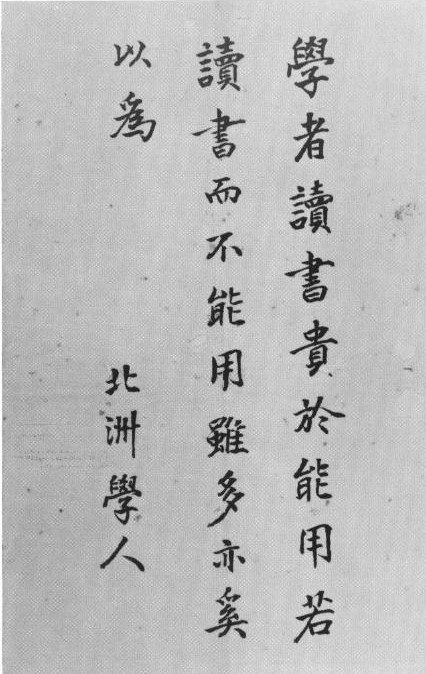 學者讀書貴於能用若
讀書而不能用雖多亦奚
以爲
北洲學人